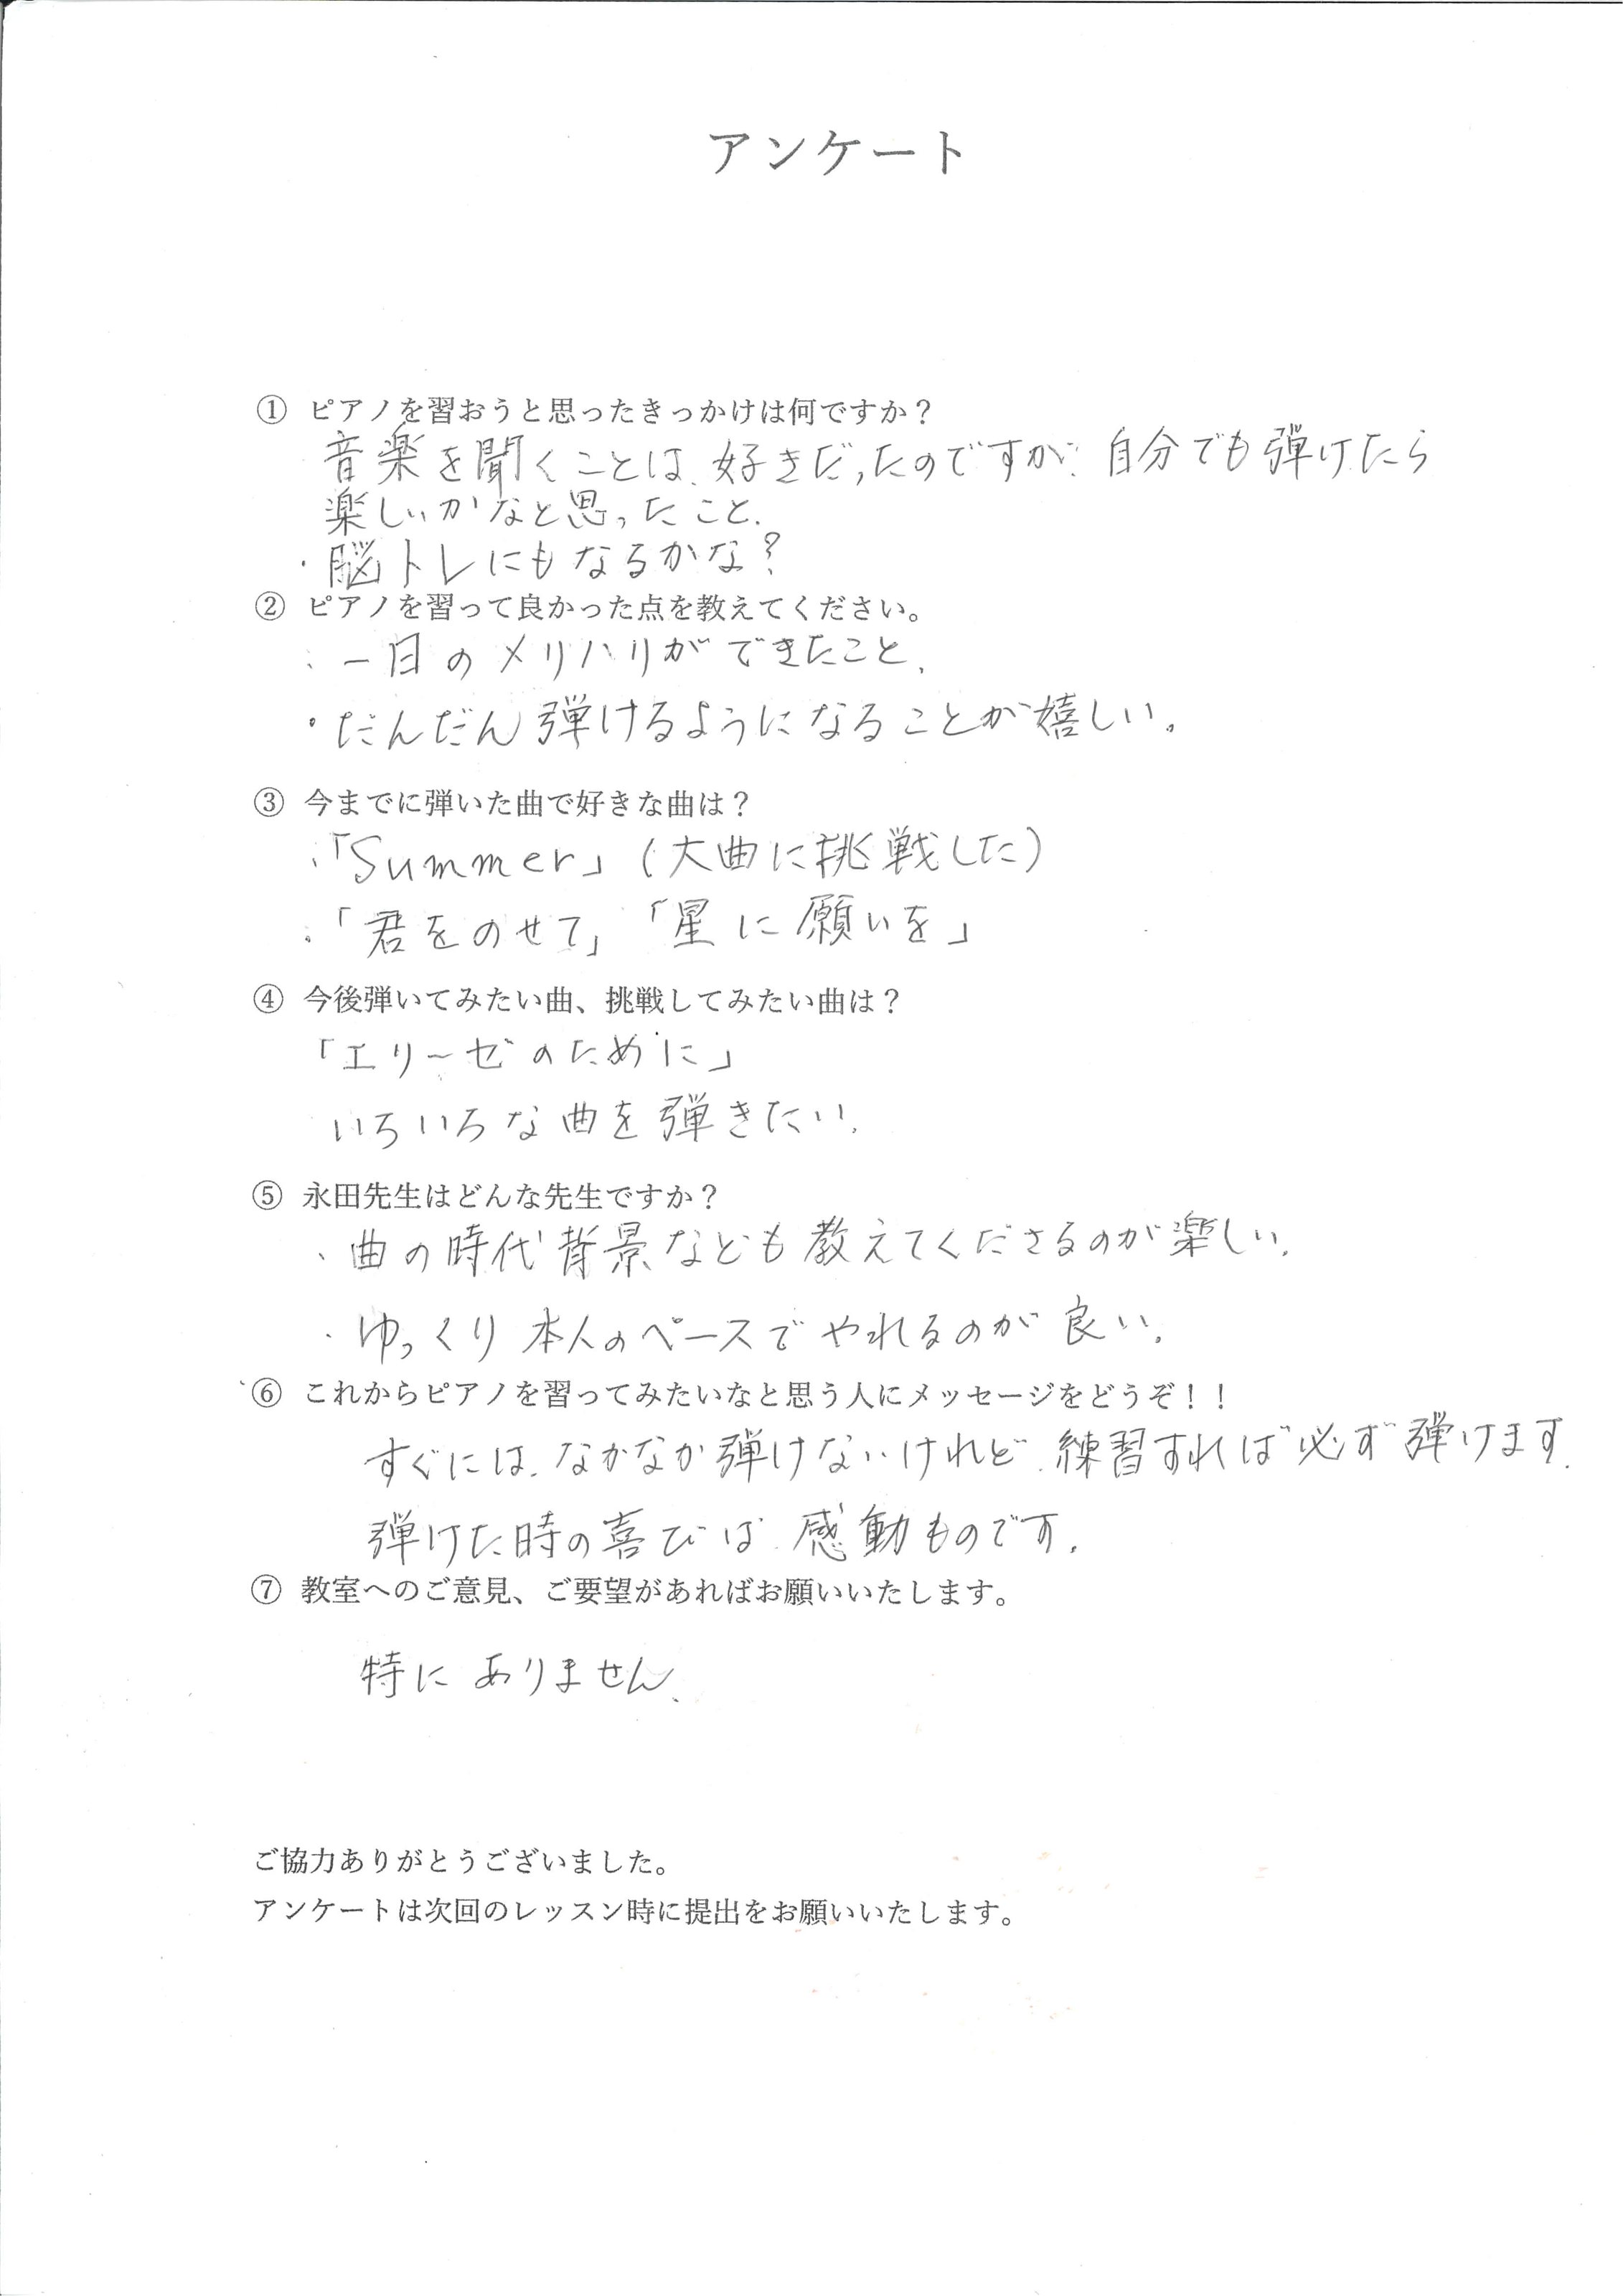 アンケート
① ピアノを習おうと思ったきっかけは何ですか？
音楽を聞くことは、好きだったのですが、自分でも弾けたら
楽しいかなと思ったこと。
・脳トレにもなるかな？
② ピアノを習って良かった点を教えてください。
・一日のメリハリができたこと。
・だんだん弾けるようになることが嬉しい。
③ 今までに弾いた曲で好きな曲は？
・「Summer」（大曲に挑戦した）
・「君をのせて」「星に願いを」
④ 今後弾いてみたい曲、挑戦してみたい曲は？
「エリーゼのために」
いろいろな曲を弾きたい。
⑤ 永田先生はどんな先生ですか？
・曲の時代背景なども教えてくださるのが楽しい。
・ゆっくり本人のペースでやれるのが良い。
⑥ これからピアノを習ってみたいなと思う人にメッセージをどうぞ！！
すぐには、なかなか弾けないけれど、練習すれば必ず弾けます。
弾けた時の喜びは、感動ものです。
⑦ 教室へのご意見、ご要望があればお願いいたします。
特にありません。
ご協力ありがとうございました。
アンケートは次回のレッスン時に提出をお願いいたします。